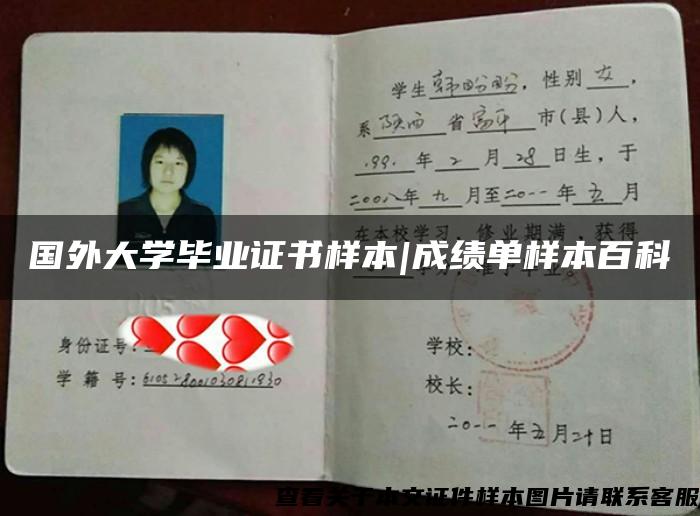 学生韩盼盼，性别女，
系陕西省富平市(县)人，
199.年2月28日生，于
二00八年九月至二0一一年五月
在本校学习，修业期满，获得
国外大学毕业证书样本|成绩单样本百科
身份证号：
学籍号：
学校：
校长：
二0一一年五月二十日
查看关于本文证件样本图片请联系客服